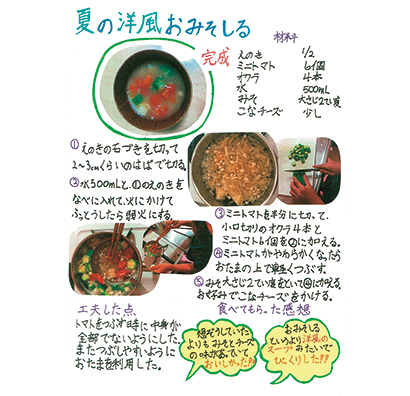 夏の洋風おみそしる
完成
材料
えのき 1/2
ミニトマト 6個
オクラ 4本
水 500mL
みそ 大さじ2てい度
こなチーズ 少し
①えのきの石づきを切って
2〜3cmくらいのはばで切る。
②水500mLと、①のえのきを
なべに入れて、火にかけて
ふっとうしたら弱火にする。
③ミニトマトを半分に切って、
小口切りのオクラ4本と
ミニトマト6個を②に加える。
④ミニトマトがやわらかくなったら
おたまの上で軽くつぶす。
⑤みそ大さじ2てい度をといて④に加える
お好みでこなチーズをかける。
工夫した点
トマトをつぶす時に中身が
全部でないようにした。
またつぶしやすいように
おたまを利用した。
食べてもらった感想
想ぞうしていた
よりもみそとチーズ
の味があっていて
おいしかった!!
おみそしる
というより洋風の
スープみたいで
びっくりした!!